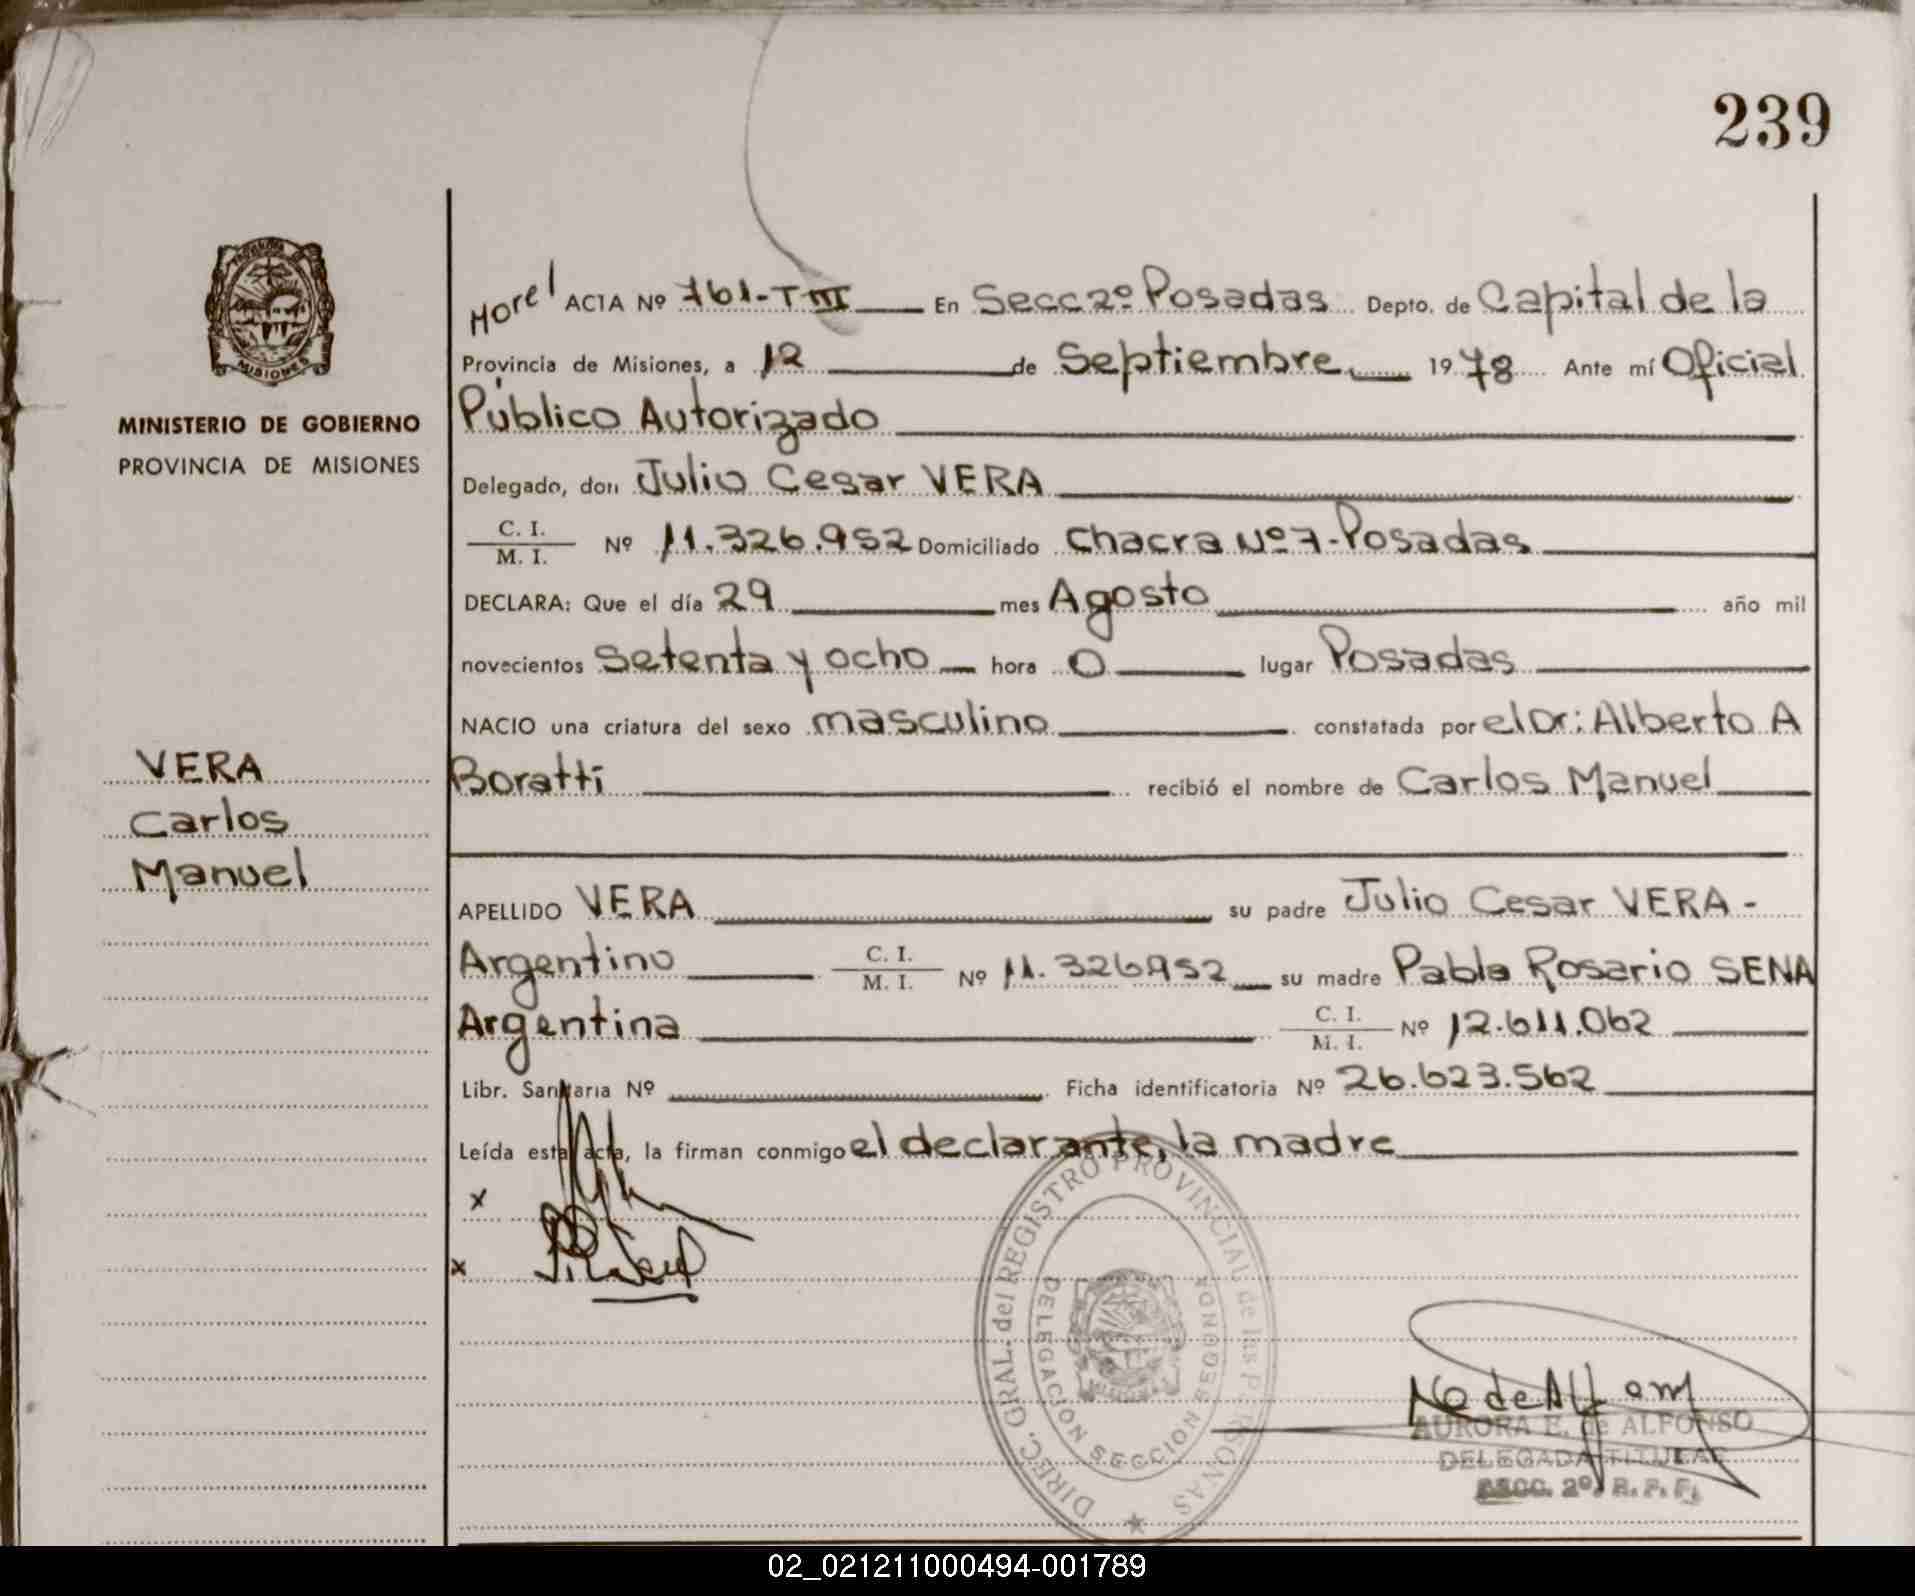 239
PROVINCIA DE
MISIONES
MINISTERIO DE GOBIERNO
PROVINCIA DE MISIONES
VERA
Carlos
Manuel
Morel ACTA Nº 761-TIII En Secc 2º Posadas Depto. de Capital de la
Provincia de Misiones, a 12 de Septiembre 1978 Ante mí Oficial
Público Autorizado
Delegado, don Julio Cesar VERA
C. I.
M. I. Nº 11.326.952 Domiciliado Chacra Nº 7-Posadas
DECLARA: Que el día 29 mes Agosto año mil
novecientos setenta y ocho hora 0 lugar Posadas
NACIO una criatura del sexo masculino constatada por el Dr: Alberto A
Boratti recibió el nombre de Carlos Manuel
APELLIDO VERA su padre Julio Cesar VERA -
Argentino C. I.
M. I. Nº 11.326.952 su madre Pabla Rosario SENA
Argentina C. I.
M. I. Nº 12.611.062
Libr. Sanitaria Nº Ficha identificatoria Nº 26.623.562
Leída esta acta, la firman conmigo el declarante, la madre
x
x
DIREC. GRAL. del REGISTRO PROVINCIAL de las PERSONAS
DELEGACION SECCION SEGUNDA
MISIONES
AURORA E. de ALFONSO
DELEGADA TITULAR
SECC. 2º.
02_021211000494-001789